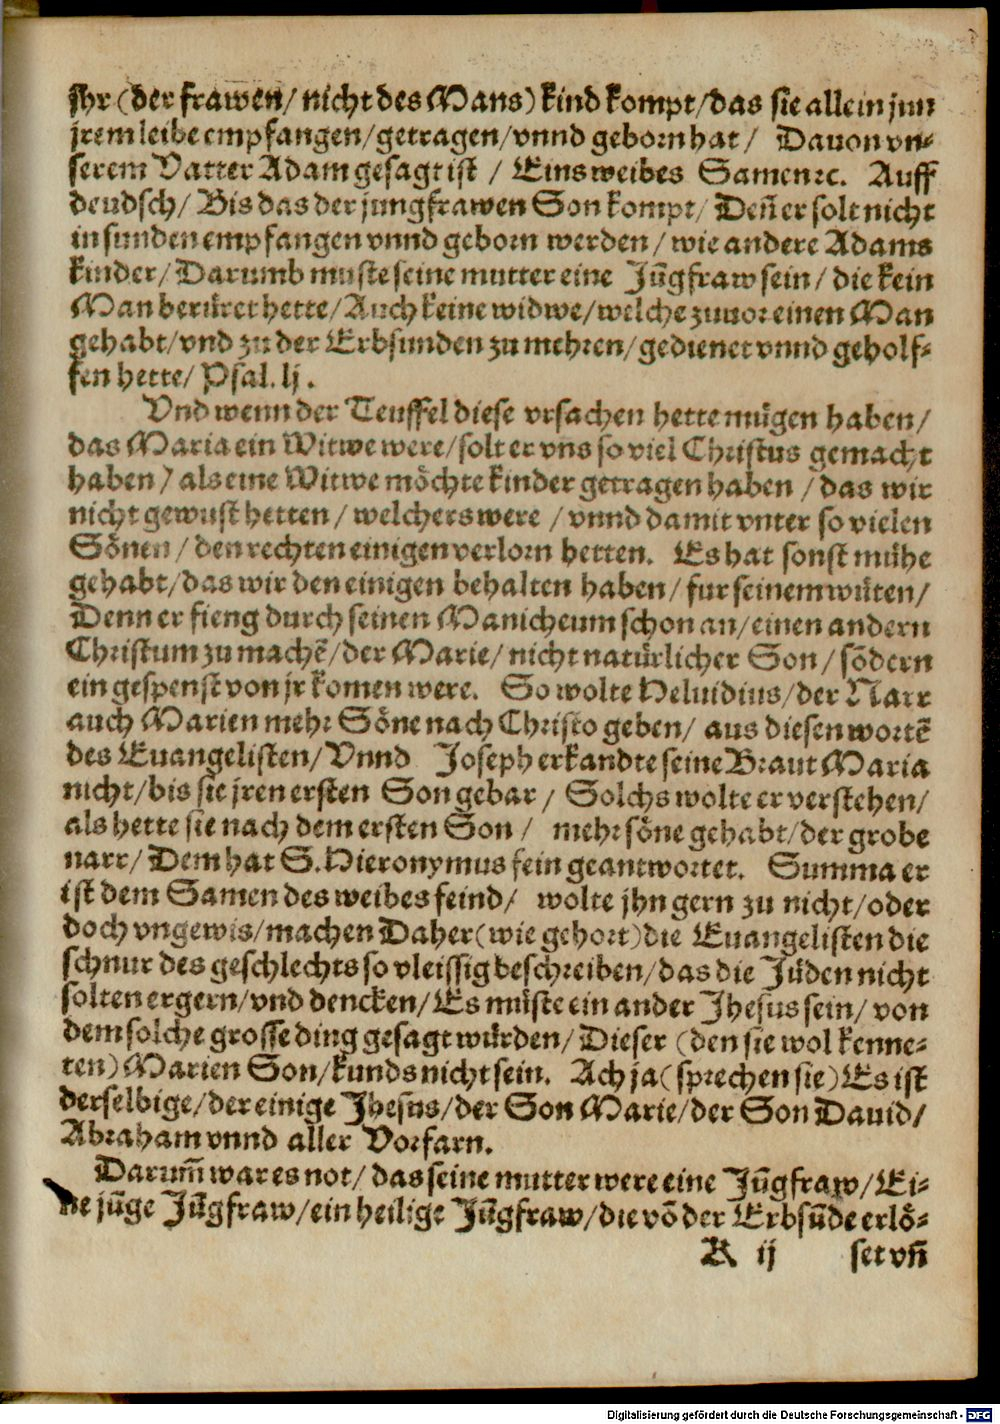 jhr (der frawen/ nicht des Mans) kind kompt/ das sie allein jnn
jrem leibe empfangen/ getragen/ vnnd geborn hat/ Dauon vn-
serem Vatter Adam gesagt ist / Eins weibes Samen ꝛc. Auff
deudsch/ Bis das der jungfrawen Son kompt/ Deñ er solt nicht
in sunden empfangen vnnd geborn werden/ wie andere Adams
kinder/ Darumb muste seine mutter eine Jũgfraw sein/ die kein
Man berüret hette/ Auch keine widwe/ welche zuuor einen Man
gehabt/ vnd zu der Erbsunden zu mehren/ gedienet vnnd geholf-
fen hette/ Psal. lj.
Vnd wenn der Teuffel diese vrsachen hette mügen haben/
das Maria ein Witwe were/ solt er vns so viel Christus gemacht
haben/ als eine Witwe möchte kinder getragen haben / das wir
nicht gewust hetten/ welchers were / vnnd damit vnter so vielen
Sönen/ den rechten einigen verlorn hetten. Es hat sonst mühe
gehabt/ das wir den einigen behalten haben/ fur seinem wüten/
Denn er fieng durch seinen Manicheum schon an/ einen andern
Christum zu machẽ/ der Marie/ nicht natürlicher Son/ sõdern
ein gespenst von jr komen were. So wolte Heluidius/ der Narr
auch Marien mehr Söne nach Christo geben/ aus diesen wortẽ
des Euangelisten/ Vnnd Joseph erkandte seine Braut Maria
nicht/ bis sie jren ersten Son gebar / Solchs wolte er verstehen/
als hette sie nach dem ersten Son / mehr söne gehabt/ der grobe
narr/ Dem hat S. Hieronymus fein geantwortet. Summa er
ist dem Samen des weibes feind/ wolte jhn gern zu nicht/ oder
doch vngewis/ machen Daher (wie gehort) die Euangelisten die
schnur des geschlechts so vleissig beschreiben/ das die Jüden nicht
solten ergern/ vnd dencken/ Es müste ein ander Jhesus sein/ von
dem solche grosse ding gesagt würden/ Dieser (den sie wol kenne-
ten) Marien Son/ kunds nicht sein. Ach ja (sprechen sie) Es ist
derselbige/ der einige Jhesus/ der Son Marie/ der Son Dauid/
Abraham vnnd aller Vorfarn.
Darum̃ war es not/ das seine mutter were eine Jũgfraw/ Ei-
ne jũge Jũgfraw/ ein heilige Jũgfraw/ die võ der Erbsũde erlö-
K ij set vñ
Digitalisierung gefördert durch die Deutsche Forschungsgemeinschaft - DFG